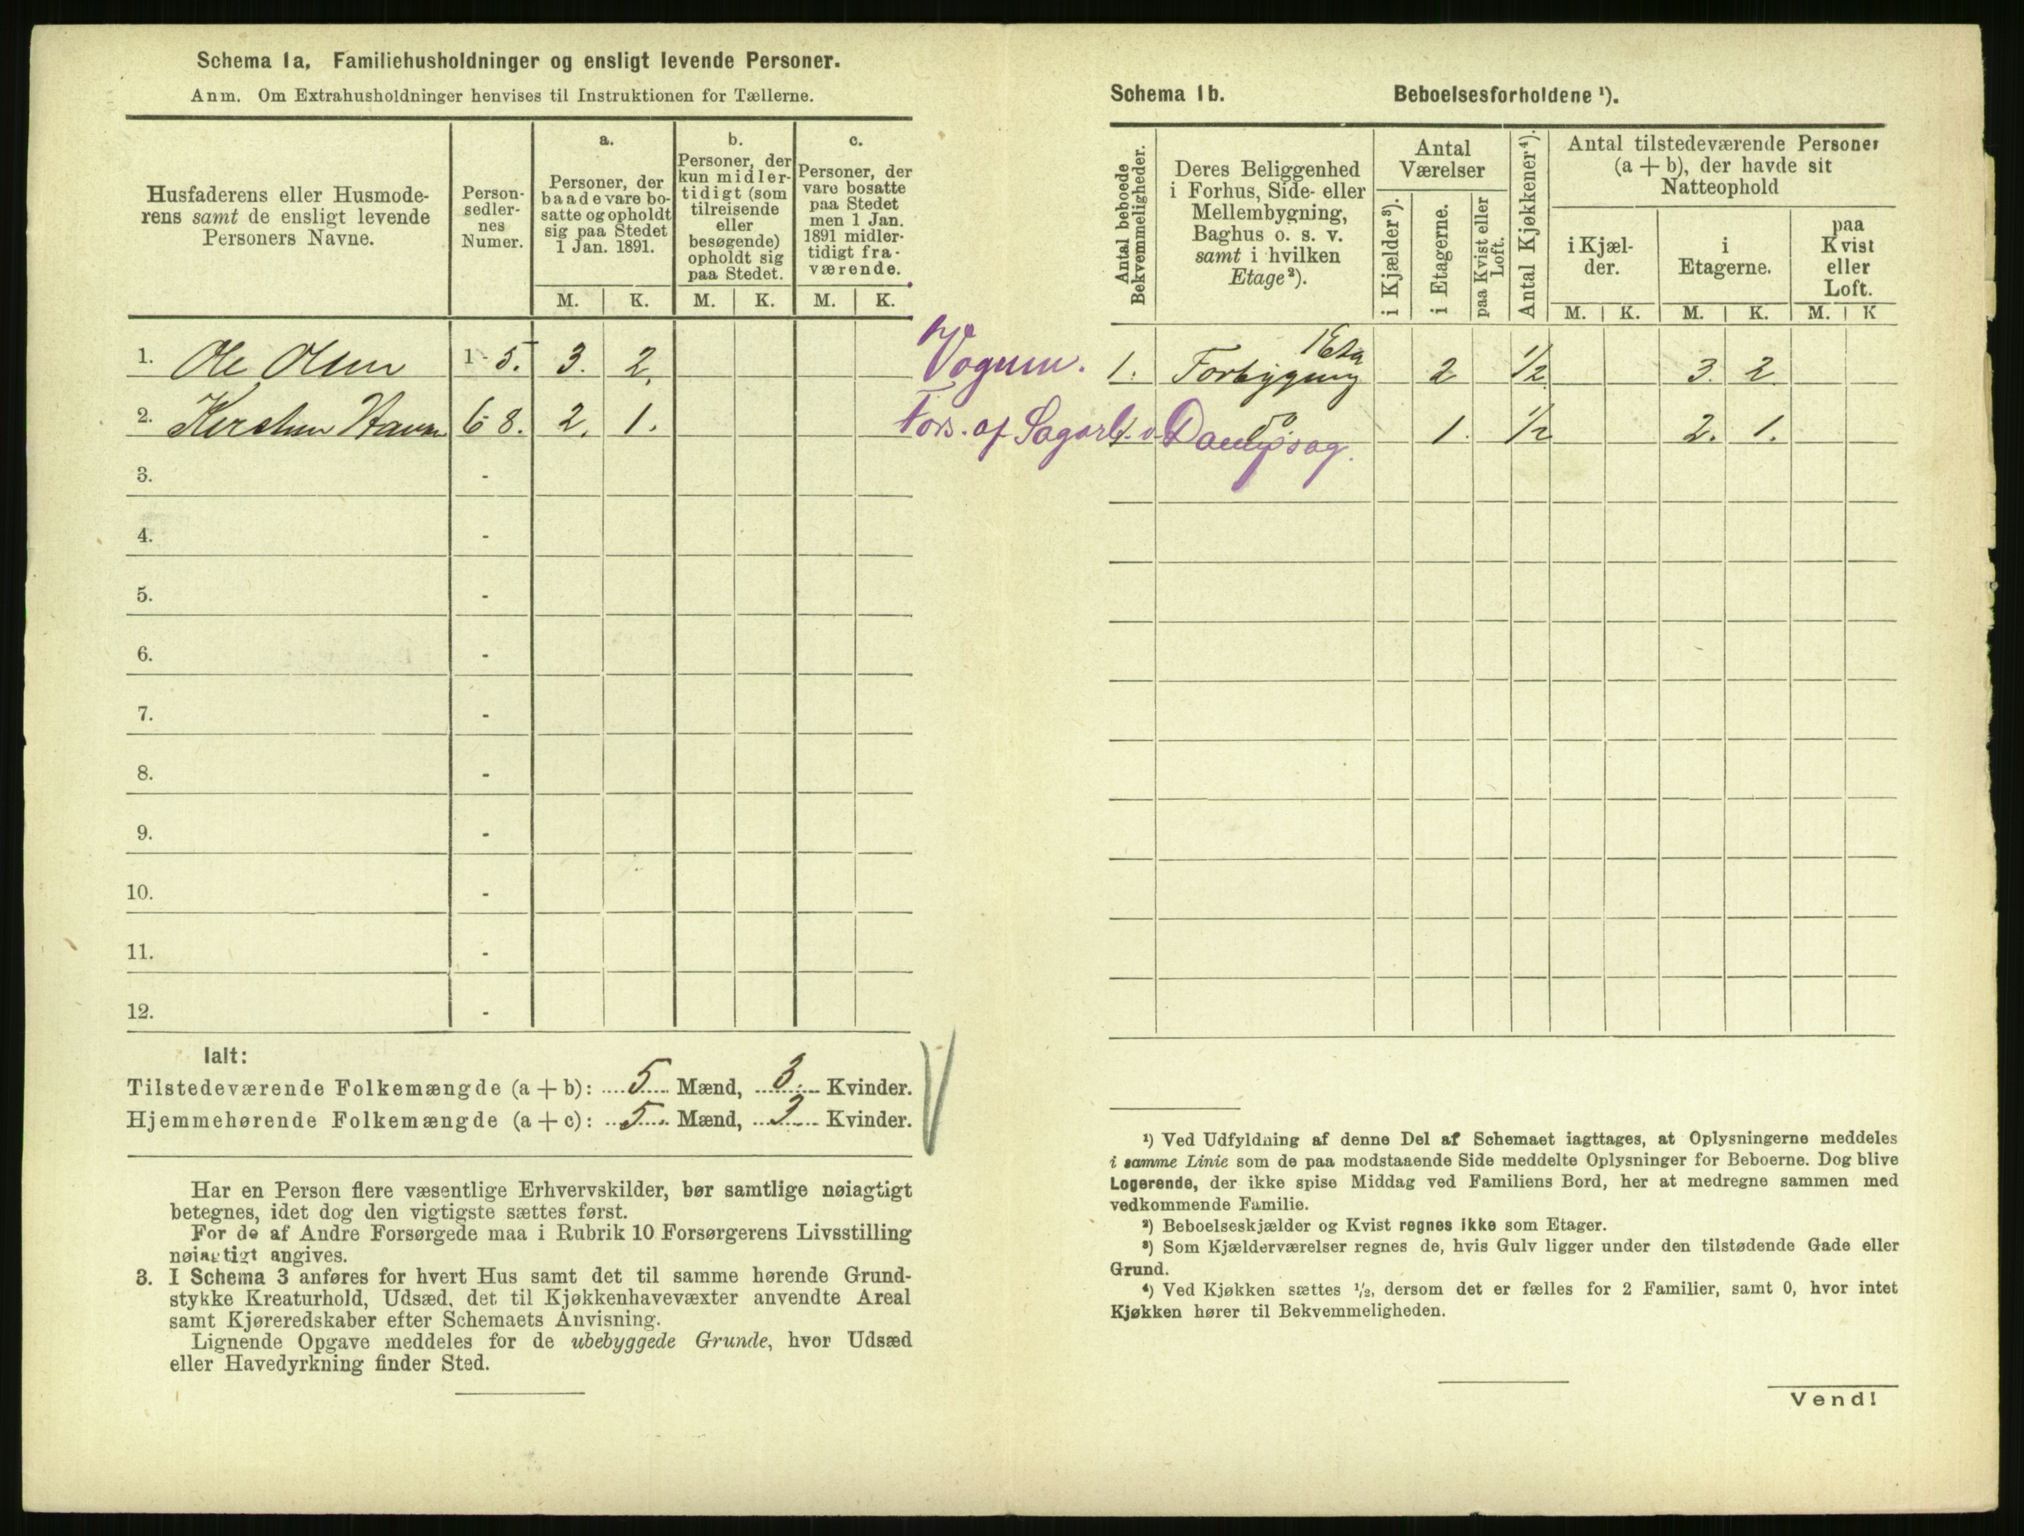 Schema 1a. Familiehusholdninger og ensligt levende Personer.
Anm. Om Extrahusholdninger henvises til Instruktionen for Tællerne.
Husfaderens eller Husmode-
rens samt de ensligt levende
Personers Navne.
Person-
sedler-
nes
Numer.
a.
Personer, der
baade vare bo-
satte og opholdt
sig paa Stedet
1 Jan. 1891.
b.
Personer, der
kun midler-
tidigt (som
tilreisende
eller
besøgende)
opholdt sig
paa Stedet.
c.
Personer, der
vare bosatte
paa Stedet
men 1 Jan.
1891 midler-
tidigt fra-
værende.
M. K. M. K. M. K.
1. Ole Olsen 1-5. 3. 2.
2. 6-8. 2. 1.
3. -
4. -
5. -
6. -
7. -
8. -
9. -
10. -
11. -
12. -
Ialt:
Tilstedeværende Folkemængde (a + b): 5 Mænd, 3. Kvinder.
Hjemmehørende Folkemængde (a + c): 5. Mænd, 3 Kvinder.
Har en Person flere væsentlige Erhvervskilder, bør samtlige nøiagtigt
betegnes, idet dog den vigtigste sættes først.
For de af Andre Forsørgede maa i Rubrik 10 Forsørgerens Livsstilling
nøiagtigt angives.
3. I Schema 3 anføres for hvert Hus samt det til samme hørende Grund-
stykke Kreaturhold, Udsæd, det til Kjøkkenhavevæxter anvendte Areal
samt Kjøreredskaber efter Schemaets Anvisning.
Lignende Opgave meddeles for de ubebyggede Grunde, hvor Udsæd
eller Havedyrkning finder Sted.
Schema 1b. Beboelsesforholdene ¹).
Antal beboede
Bekvemmeligheder.
Deres Beliggenhed
i Forhus, Side- eller
Mellembygning,
Baghus o. s. v.
samt i hvilken
Etage²).
Antal
Værelser
i Kjælder³).
i Etagerne.
paa Kvist eller
Loft.
Antal Kjøkkener⁴).
Antal tilstedeværende Personer
(a + b), der havde sit
Natteophold
i Kjæl-
der.
i
Etagerne.
paa
Kvist
eller
Loft.
M. K. M. K. M. K
1 Eta
1. Forbygning 2 1/2 3. 2
Fors. af Sagarb. v. Dampsag.
do 1. 1/2 2. 1.
¹) Ved Udfyldning af denne Del af Schemaet iagttages, at Oplysningerne meddeles
i samme Linie som de paa modstaaende Side meddelte Oplysninger for Beboerne. Dog blive
Logerende, der ikke spise Middag ved Familiens Bord, her at medregne sammen med
vedkommende Familie.
²) Beboelseskjælder og Kvist regnes ikke som Etager.
³) Som Kjælderværelser regnes de, hvis Gulv ligger under den tilstødende Gade eller
Grund.
⁴) Ved Kjøkken sættes ¹/₂, dersom det er fælles for 2 Familier, samt 0, hvor intet
Kjøkken hører til Bekvemmeligheden.
Vend!